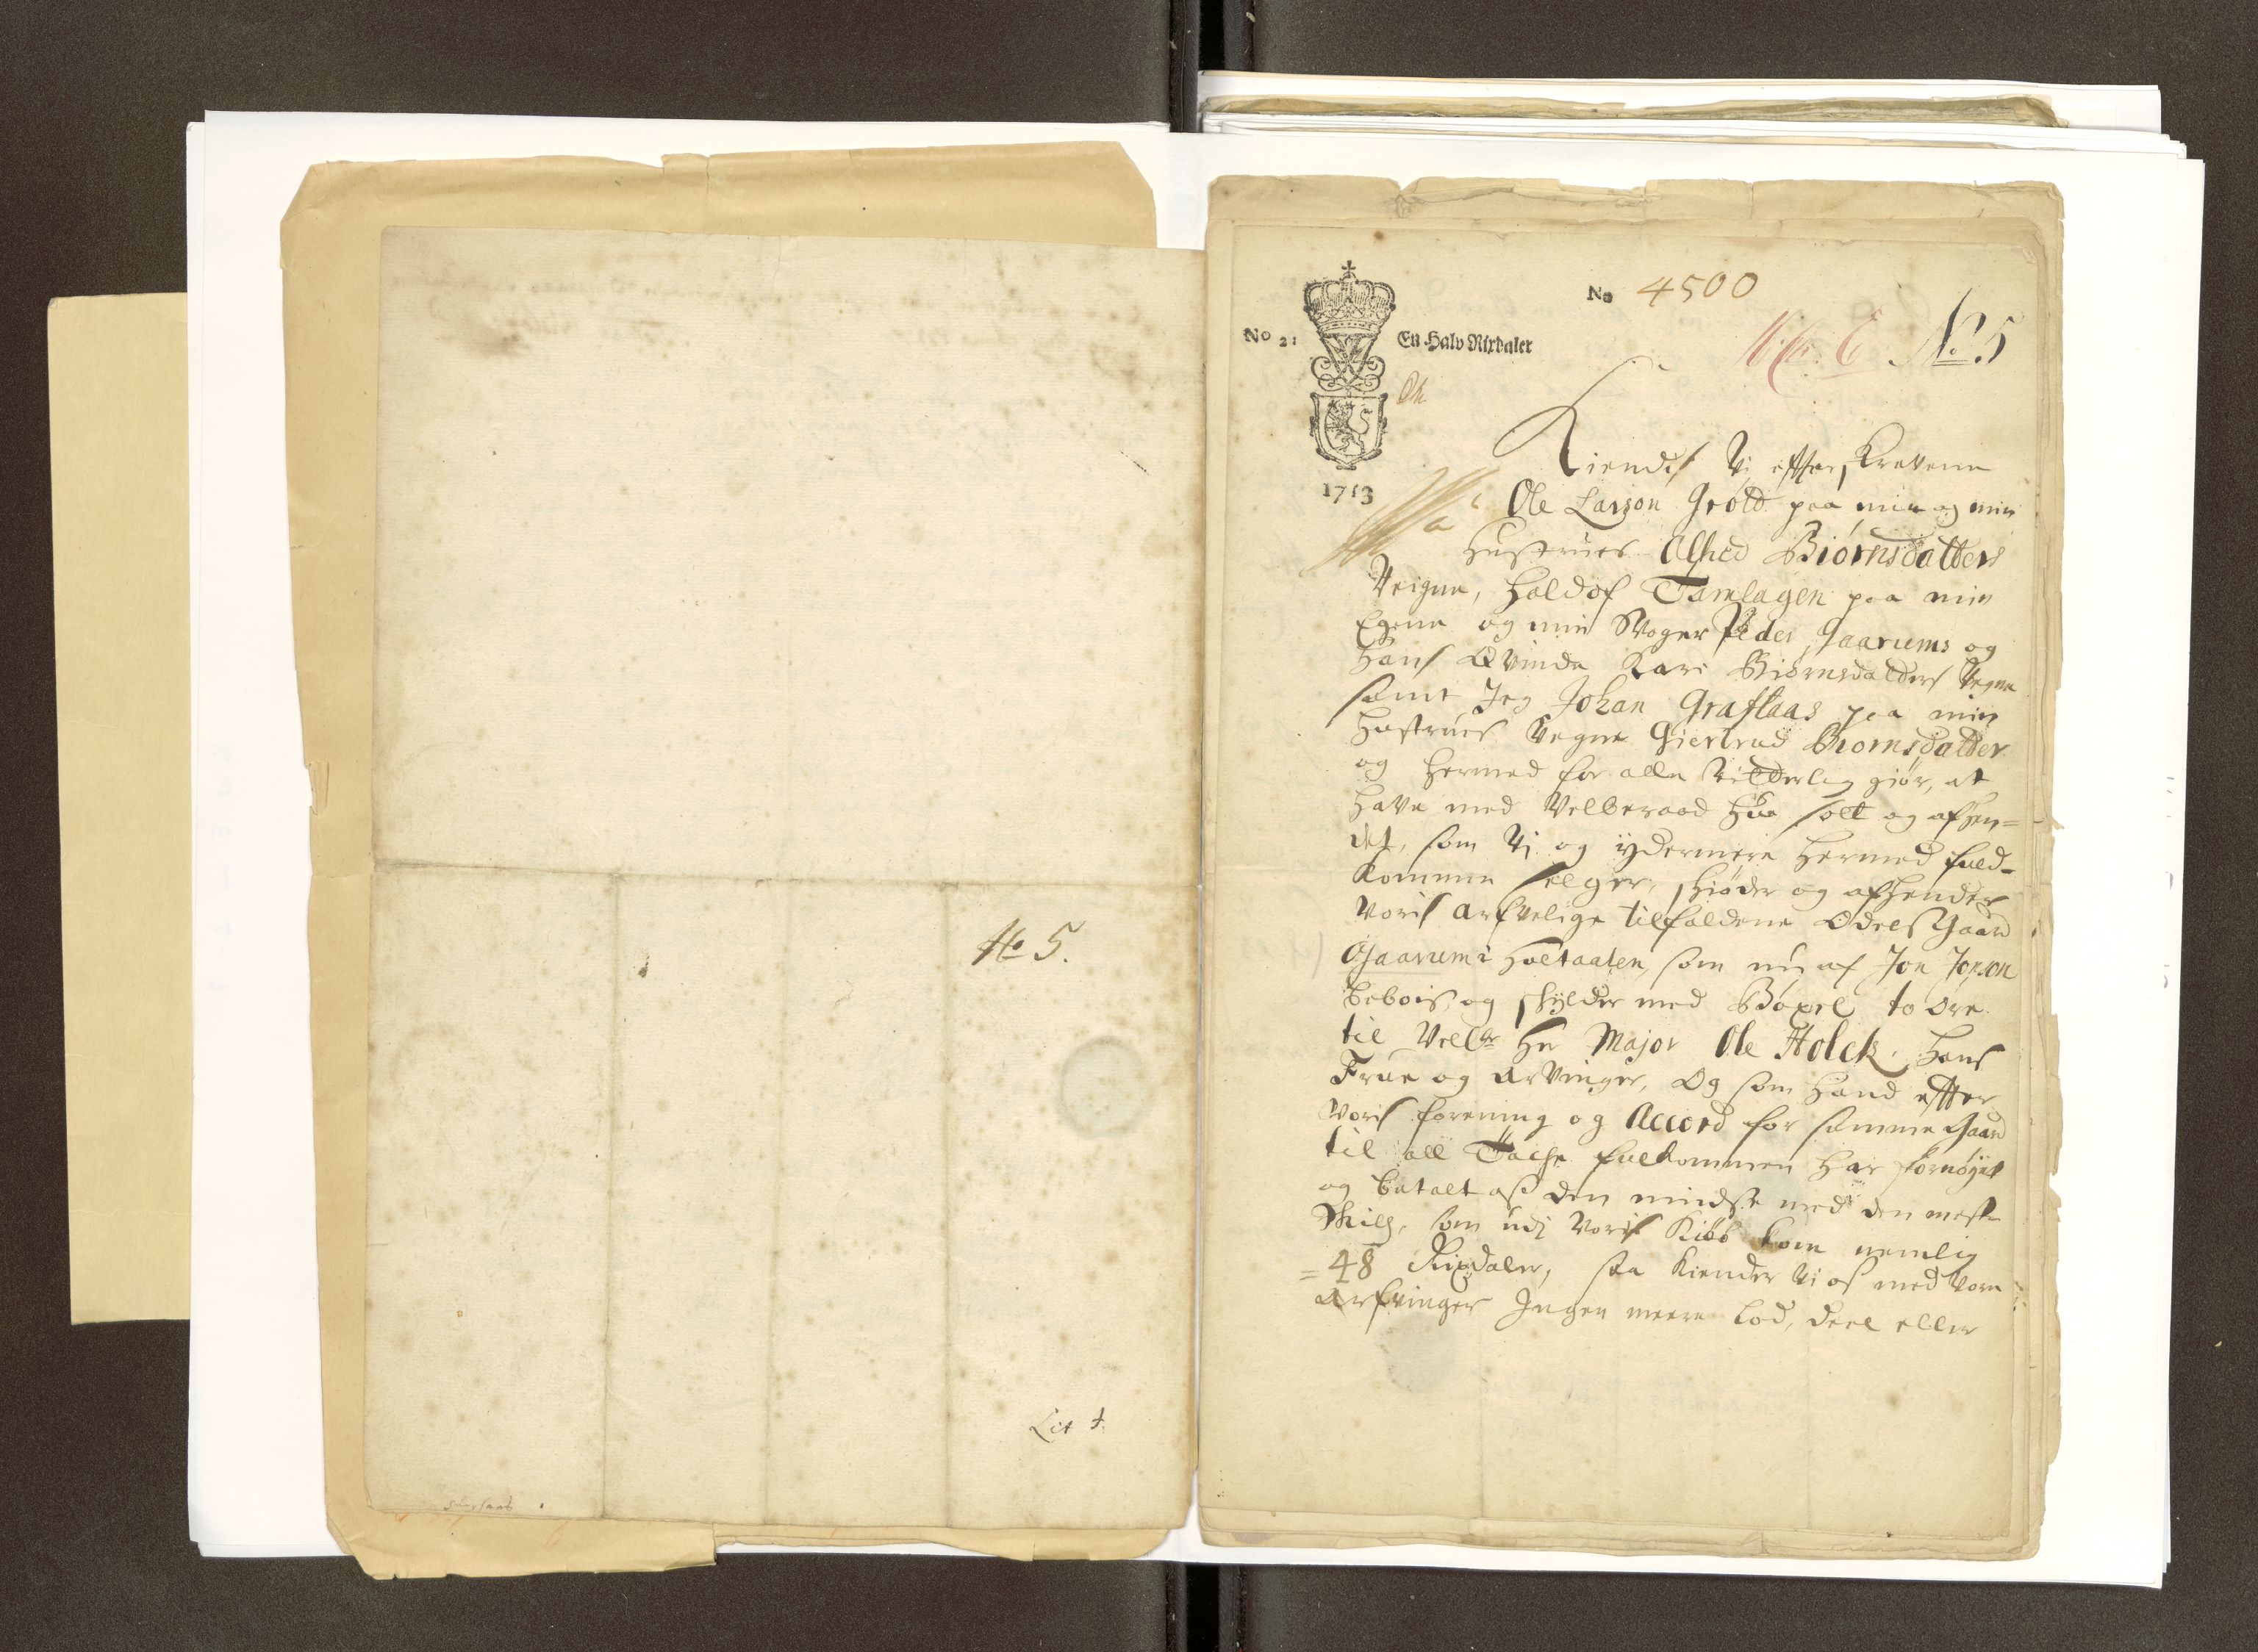 No 5.
Lit f.
No 4500
No 2:
En Halv Rixdaler
No 5
1713
Kiendes Vj effterskrevene
Ole Larson Grøtd paa min og min
Hustrues Alhed Biørnsdatters
Veigne, Haldof Tamlagen paa min
Egene og min Svoger Peder Gaarums og
Hans Qvinde Kari Biørnsdatters Vegne
samt Jeg Johan Graftaas paa min
Hustrues Vegne Giertrud Biornsdatter
og hermed for alle Vitterlig giør, at
have med Velberaad Hue solt og afhen=
det, som Vj og ÿdermere hermed fuld-
kommen selger, skiøder og afhender
Voris arfvelige tilfaldene Odels Gaard
Gaarum i Holtaalen, som nu af Jon Jonson
bebois, og skÿlder med Bøxel to Øre
til Velbr Hr Major Ole Holck, Hans
Frue og Arvinger, Og som Hand effter
Voris forening og Accord for samme Gaard
til all Tacke fulkommen har fornøÿet
og betalt os den mindste med den meste
Skilg, som udj Voris Kiøb kom nemlig
=48 Rixdaler, saa Kiender Vi os med Vore
Arfvinger Ingen meere Lod, Deel eller